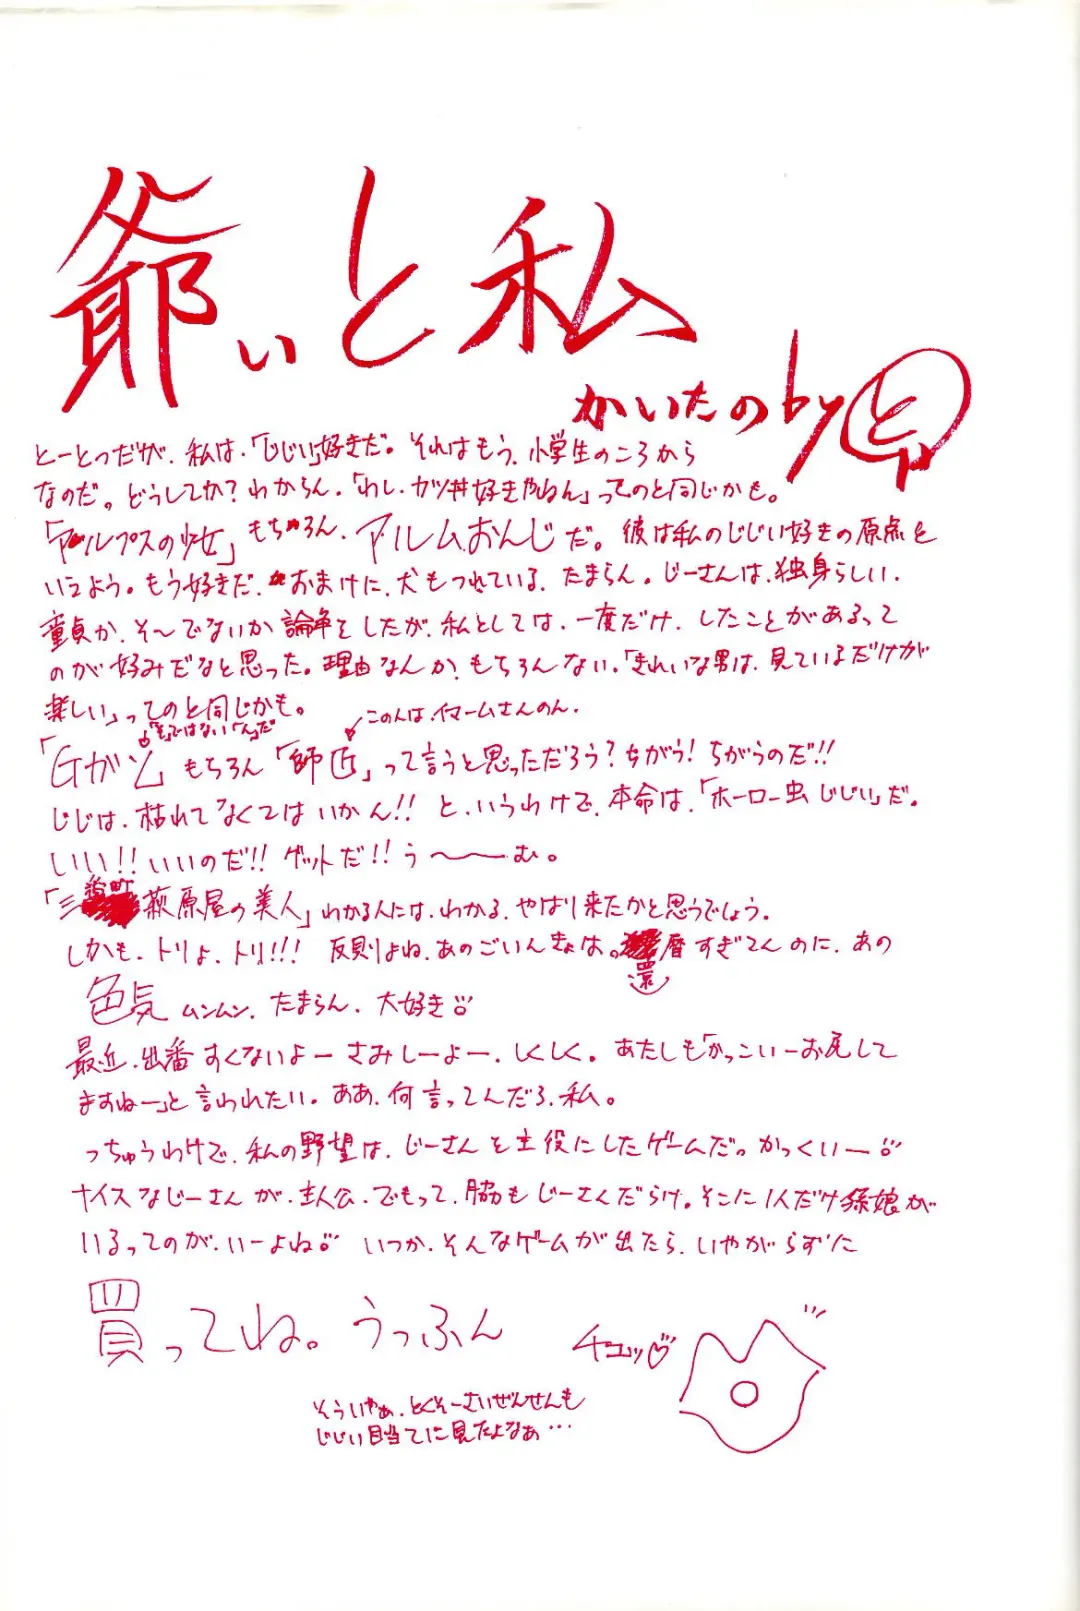 爺ぃと私
かいたの by と
とーとつだが、私は、「じじい」好きだ。それはもう、小学生のころから
なのだ。どうしてか?わからん。「わし、カツ丼好きやねん」ってのと同じかも。
「アルプスの少女」もちろん、アルムおんじだ。彼は私のじじい好きの原点と
いえよう。もう好きだ、おまけに、犬もつれている、たまらん。じーさんは、独身らしい、
童貞か、そ〜でないか論争をしたが、私としては、一度だけ、したことがあるって
のが好みだなと思った。理由なんか、もちろんない。「きれいな男は、見ているだけが
楽しい」ってのと同じかも。
「そ」ではない「ん」だ
この人は、イマームさんのん。
「Gガン」もちろん「師匠」って言うと思っただろう?ちがう!ちがうのだ!!
じじは、枯れてなくてはいかん!!と、いうわけで、本命は、「ホーロー虫じじい」だ。
いい!!いいのだ!!ゲットだ!!う〜〜む。
「三番町萩原屋の美人」わかる人には、わかる、やはり来たかと思うでしょう。
しかも、トリよ、トリ!!!反則よね、あのごいんきょは。還暦すぎてんのに、あの
色気ムンムン、たまらん、大好き♡
最近、出番すくないよーさみしーよー、しくしく。あたしも「かっこいーお尻して
ますねー」と言われたい。ああ、何言ってんだろ、私。
っちゅうわけで、私の野望は、じーさんを主役にしたゲームだ。かっくいー♡
ナイスなじーさんが、主人公、でもって、脇もじーさんだらけ。そこに1人だけ孫娘が
いるってのが、いーよね♡いつか、そんなゲームが出たら、いやがらずに
買ってね。うっふん
チュッ♡
そういやぁ、とくそーさいぜんせんも
じじい目当てに見たよなぁ…